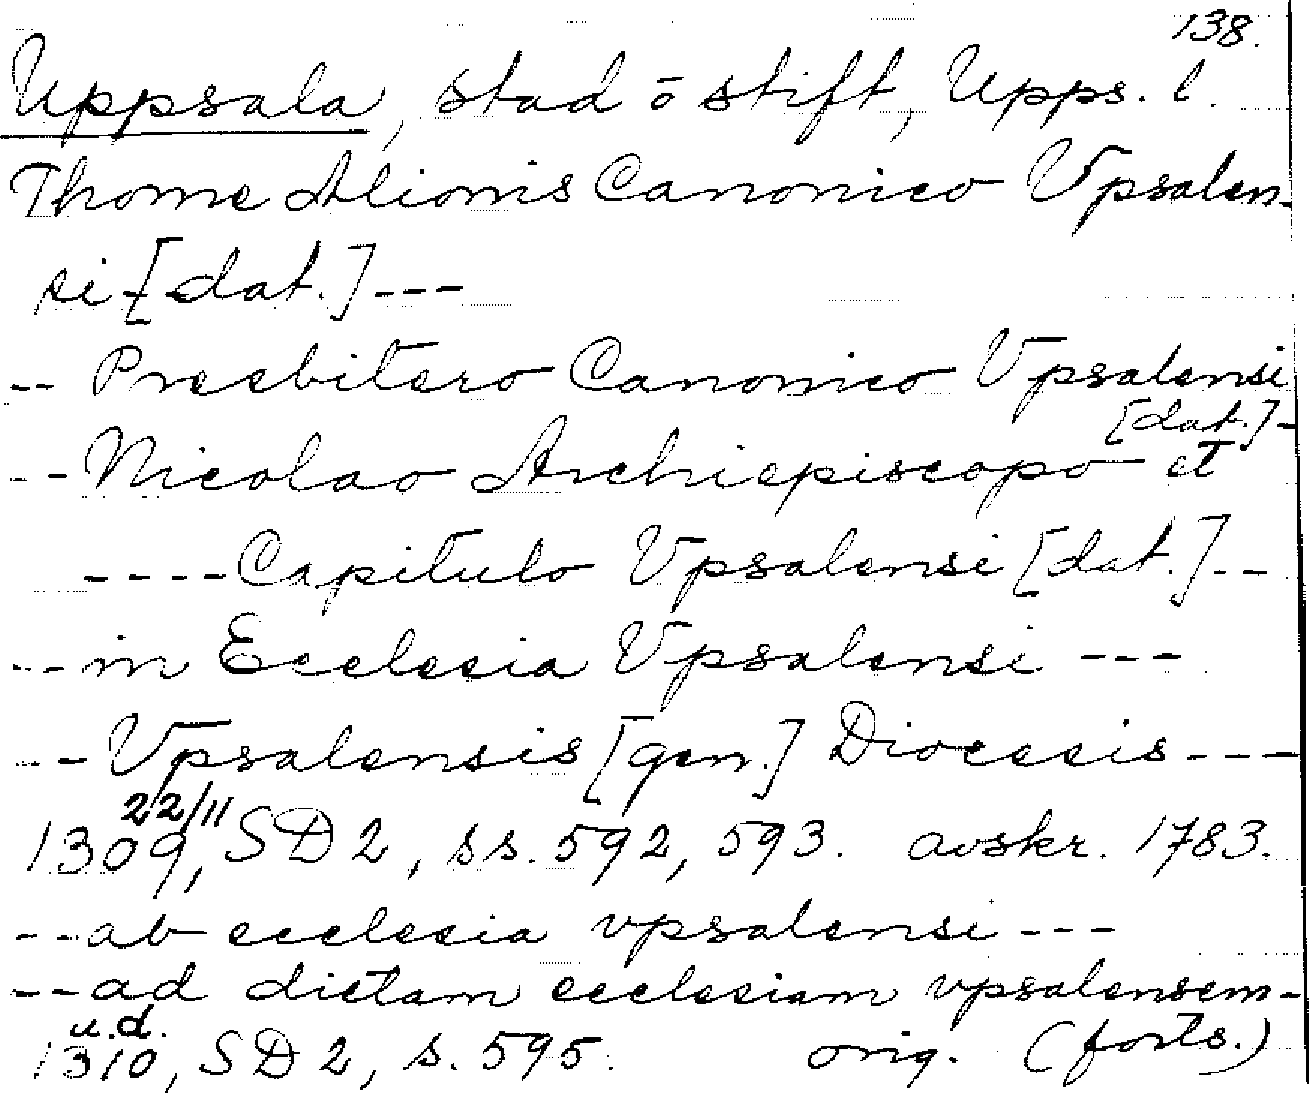 138.
Uppsala, stad o stift, Upps. l.
Thome Alionis Canonico Vpsalen-
si [dat.] ---
-- Presbitero Canonico Vpsalensi
[dat.]-
-- Nicolao Archiepiscopo et
---- Capitulo Vpsalensi [dat.] --
-- in Ecclesia Vpsalensi ---
-- Vpsalensis [gen.] Diocesis ---
22/11
1309, SD 2, ss. 592, 593. avskr. 1783.
-- ab ecclesia vpsalensi ---
-- ad dictam ecclesiam vpsalensem-
u.d.
1310, SD 2, s. 595. orig. (forts.)